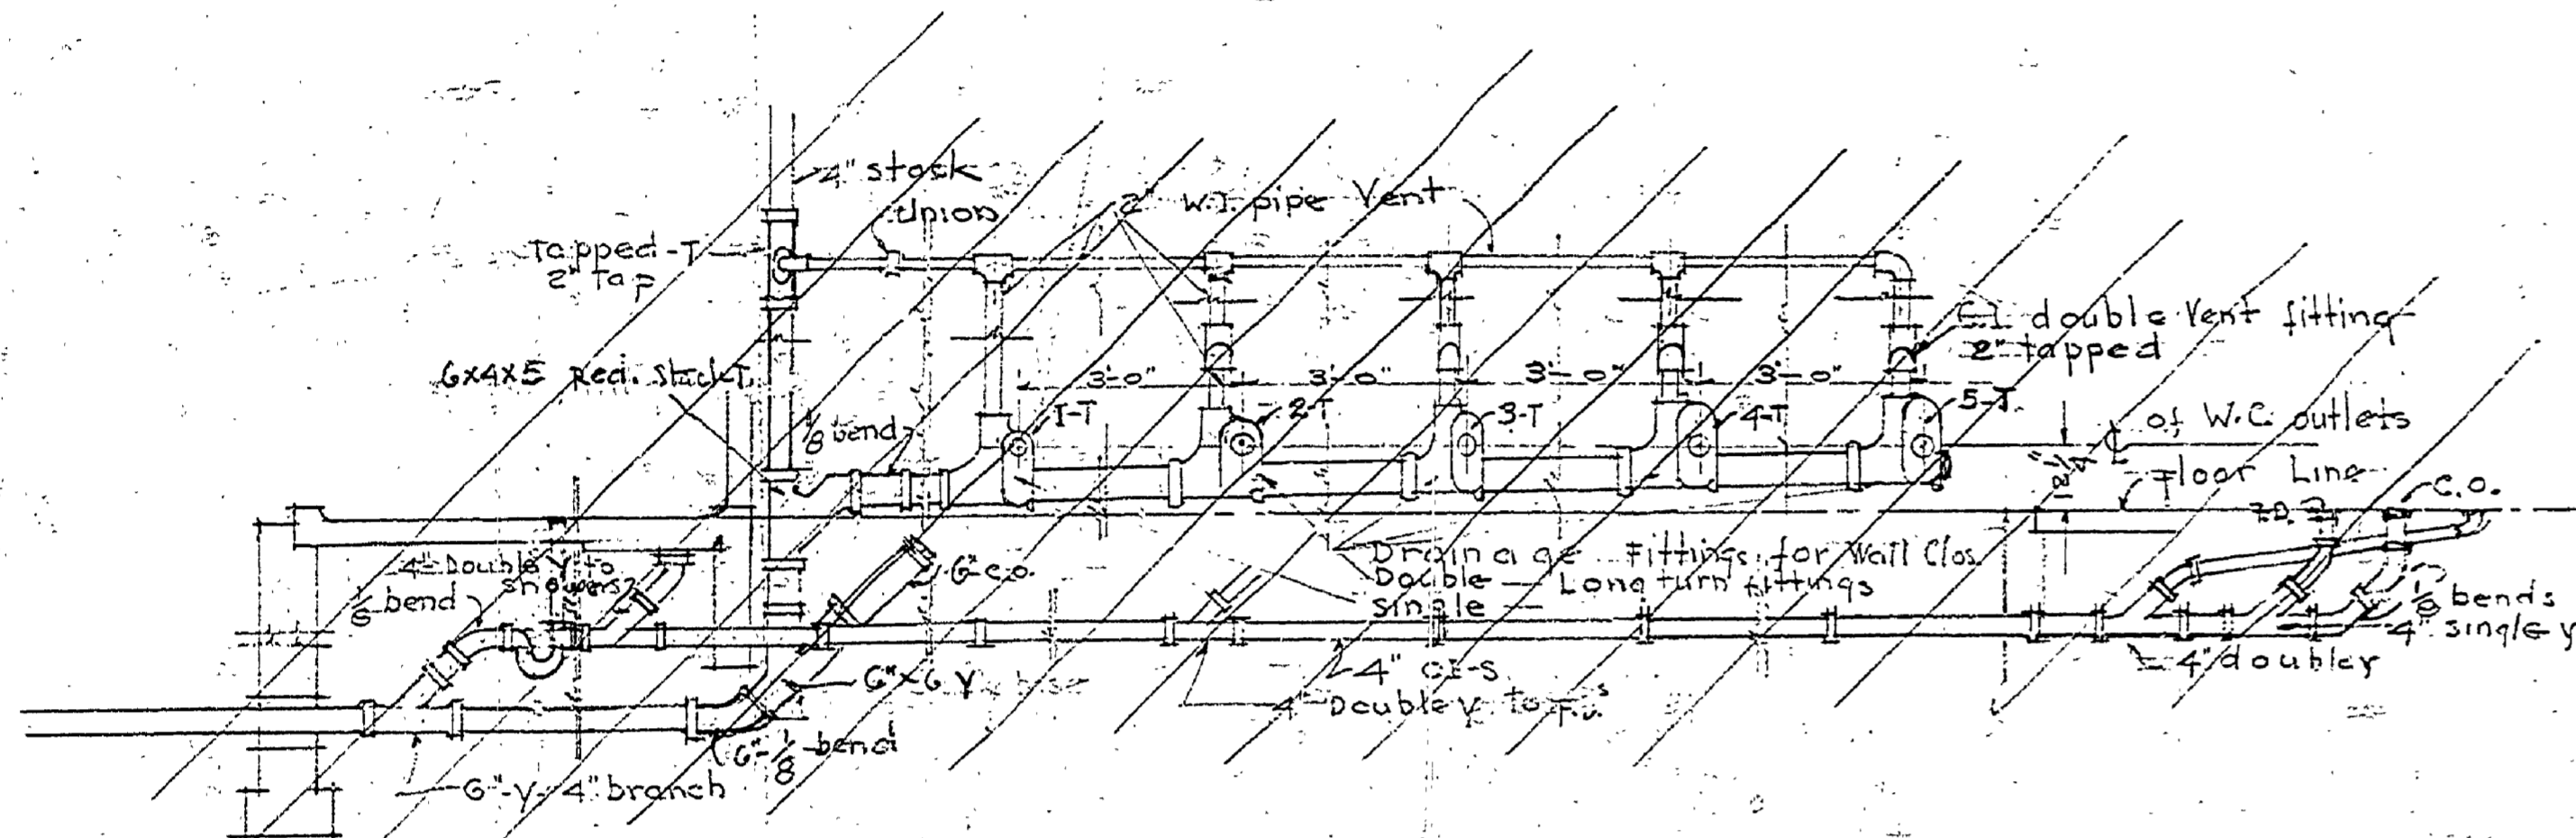 4" stack
Union
2" W.I. pipe Vent
Tapped-T
2" Tap
C.I. double Vent fitting
2" tapped
6x4x5 Red. Stack-T.
3'-0"
3'-0"
3'-0"
3'-0"
1-T
2-T
3-T
4-T
5-T.
of W.C. outlets
1/8 bend
12 1/4"
Floor Line
C.O.
F.D.
4" Double Y to
showers
1/8 bend
6" c.o.
Drainage Fittings for Wall Clos.
Double — Long turn fittings
Single —
1/8 bends
4" single Y
4" double Y
6" x 6 Y
4" CI-S
4" Double Y to F.U.s
6"-1/8-bend
6"-Y-4" branch